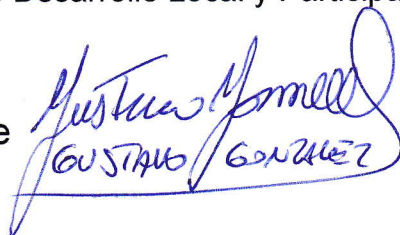 Desarrollo Local y Participa
e
GUSTAVO GONZALEZ